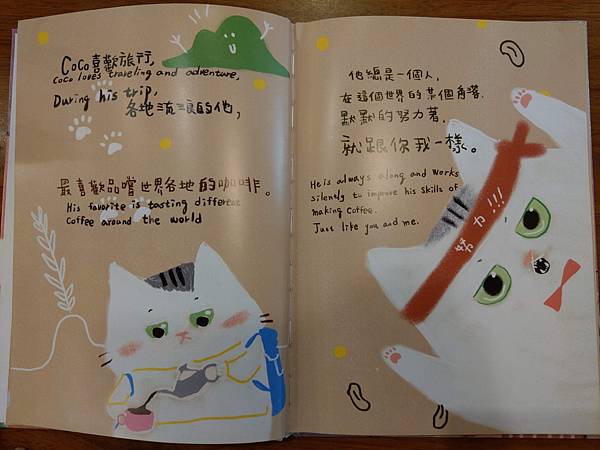 CoCo喜歡旅行,
CoCo loves traveling and adventure,
During his trip,
各地流浪的他,
最喜歡品嚐世界各地的咖啡。
His favorite is tasting different
Coffee around the world
他總是一個人,
在這個世界的某個角落.
默默的努力著,
就跟你我一樣。
He is always along and works
silently to improve his skills of
making Coffee.
Just like you and me.
努力!!!